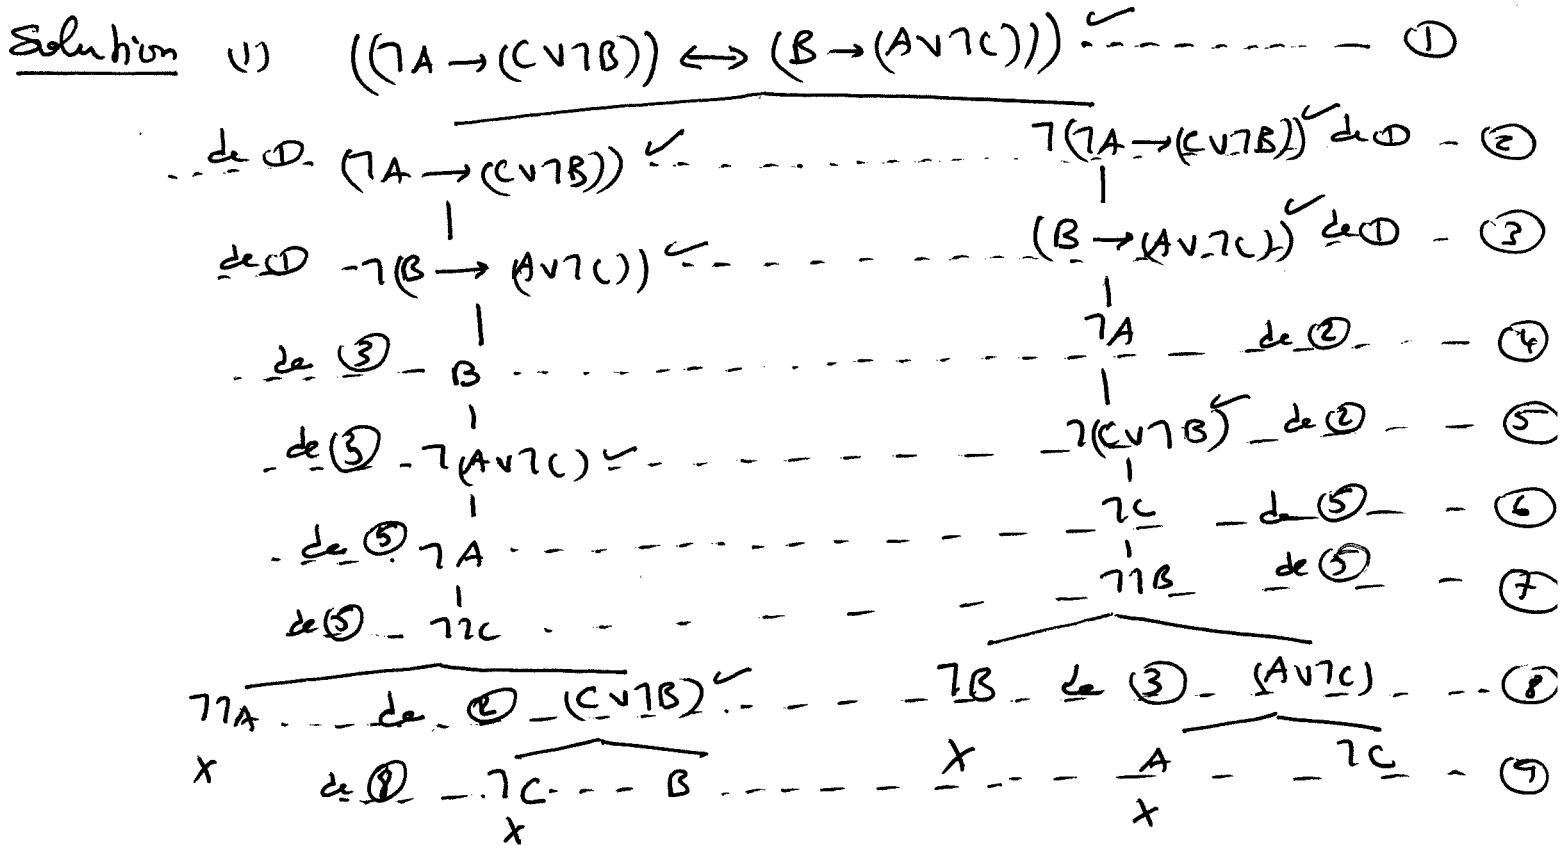 Solution (1) ((¬A → (C∨¬B)) ↔ (B → (A∨¬C))) ✓ ①
de ① (¬A → (C∨¬B)) ✓ ¬(¬A → (C∨¬B)) ✓ de ① ②
de ① ¬(B → (A∨¬C)) ✓ (B → (A∨¬C)) ✓ de ① ③
de ③ B ¬A de ② ④
de ③ ¬(A∨¬C) ✓ ¬(C∨¬B) ✓ de ② ⑤
de ⑤ ¬A ¬C de ⑤ ⑥
de ⑤ ¬¬C ¬¬B de ⑤ ⑦
¬¬A de ② (C∨¬B) ✓ ¬B de ③ (A∨¬C) ⑧
x de ⑧ ¬C B x A ¬C ⑨
x x